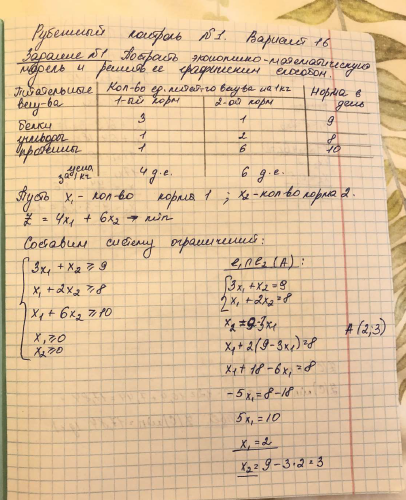 Рубежный контроль №1. Вариант 16
Задание №1 Построить экономико-математическую
модель и решить ее графическим способом.
Питательные вещ-ва | Кол-во ед. питат-го вещ-ва на 1 кг | Норма в день
1-ый корм | 2-ой корм
Белки 3 1 9
углводы 1 2 8
протеины 1 6 10
цена за 1 кг 4 д.е. 6 д.е.
Пусть x₁ - кол-во корма 1 ; x₂ - кол-во корма 2.
Z = 4x₁ + 6x₂ → min
Составим систему ограничений:
3x₁ + x₂ ≥ 9
x₁ + 2x₂ ≥ 8
x₁ + 6x₂ ≥ 10
x₁ ≥ 0
x₂ ≥ 0
l₁ ∩ l₂ (A) :
3x₁ + x₂ = 9
x₁ + 2x₂ = 8
x₂ = 9 - 3x₁
A (2,3)
x₁ + 2(9 - 3x₁) = 8
x₁ + 18 - 6x₁ = 8
-5x₁ = 8 - 18
5x₁ = 10
x₁ = 2
x₂ = 9 - 3·2 = 3